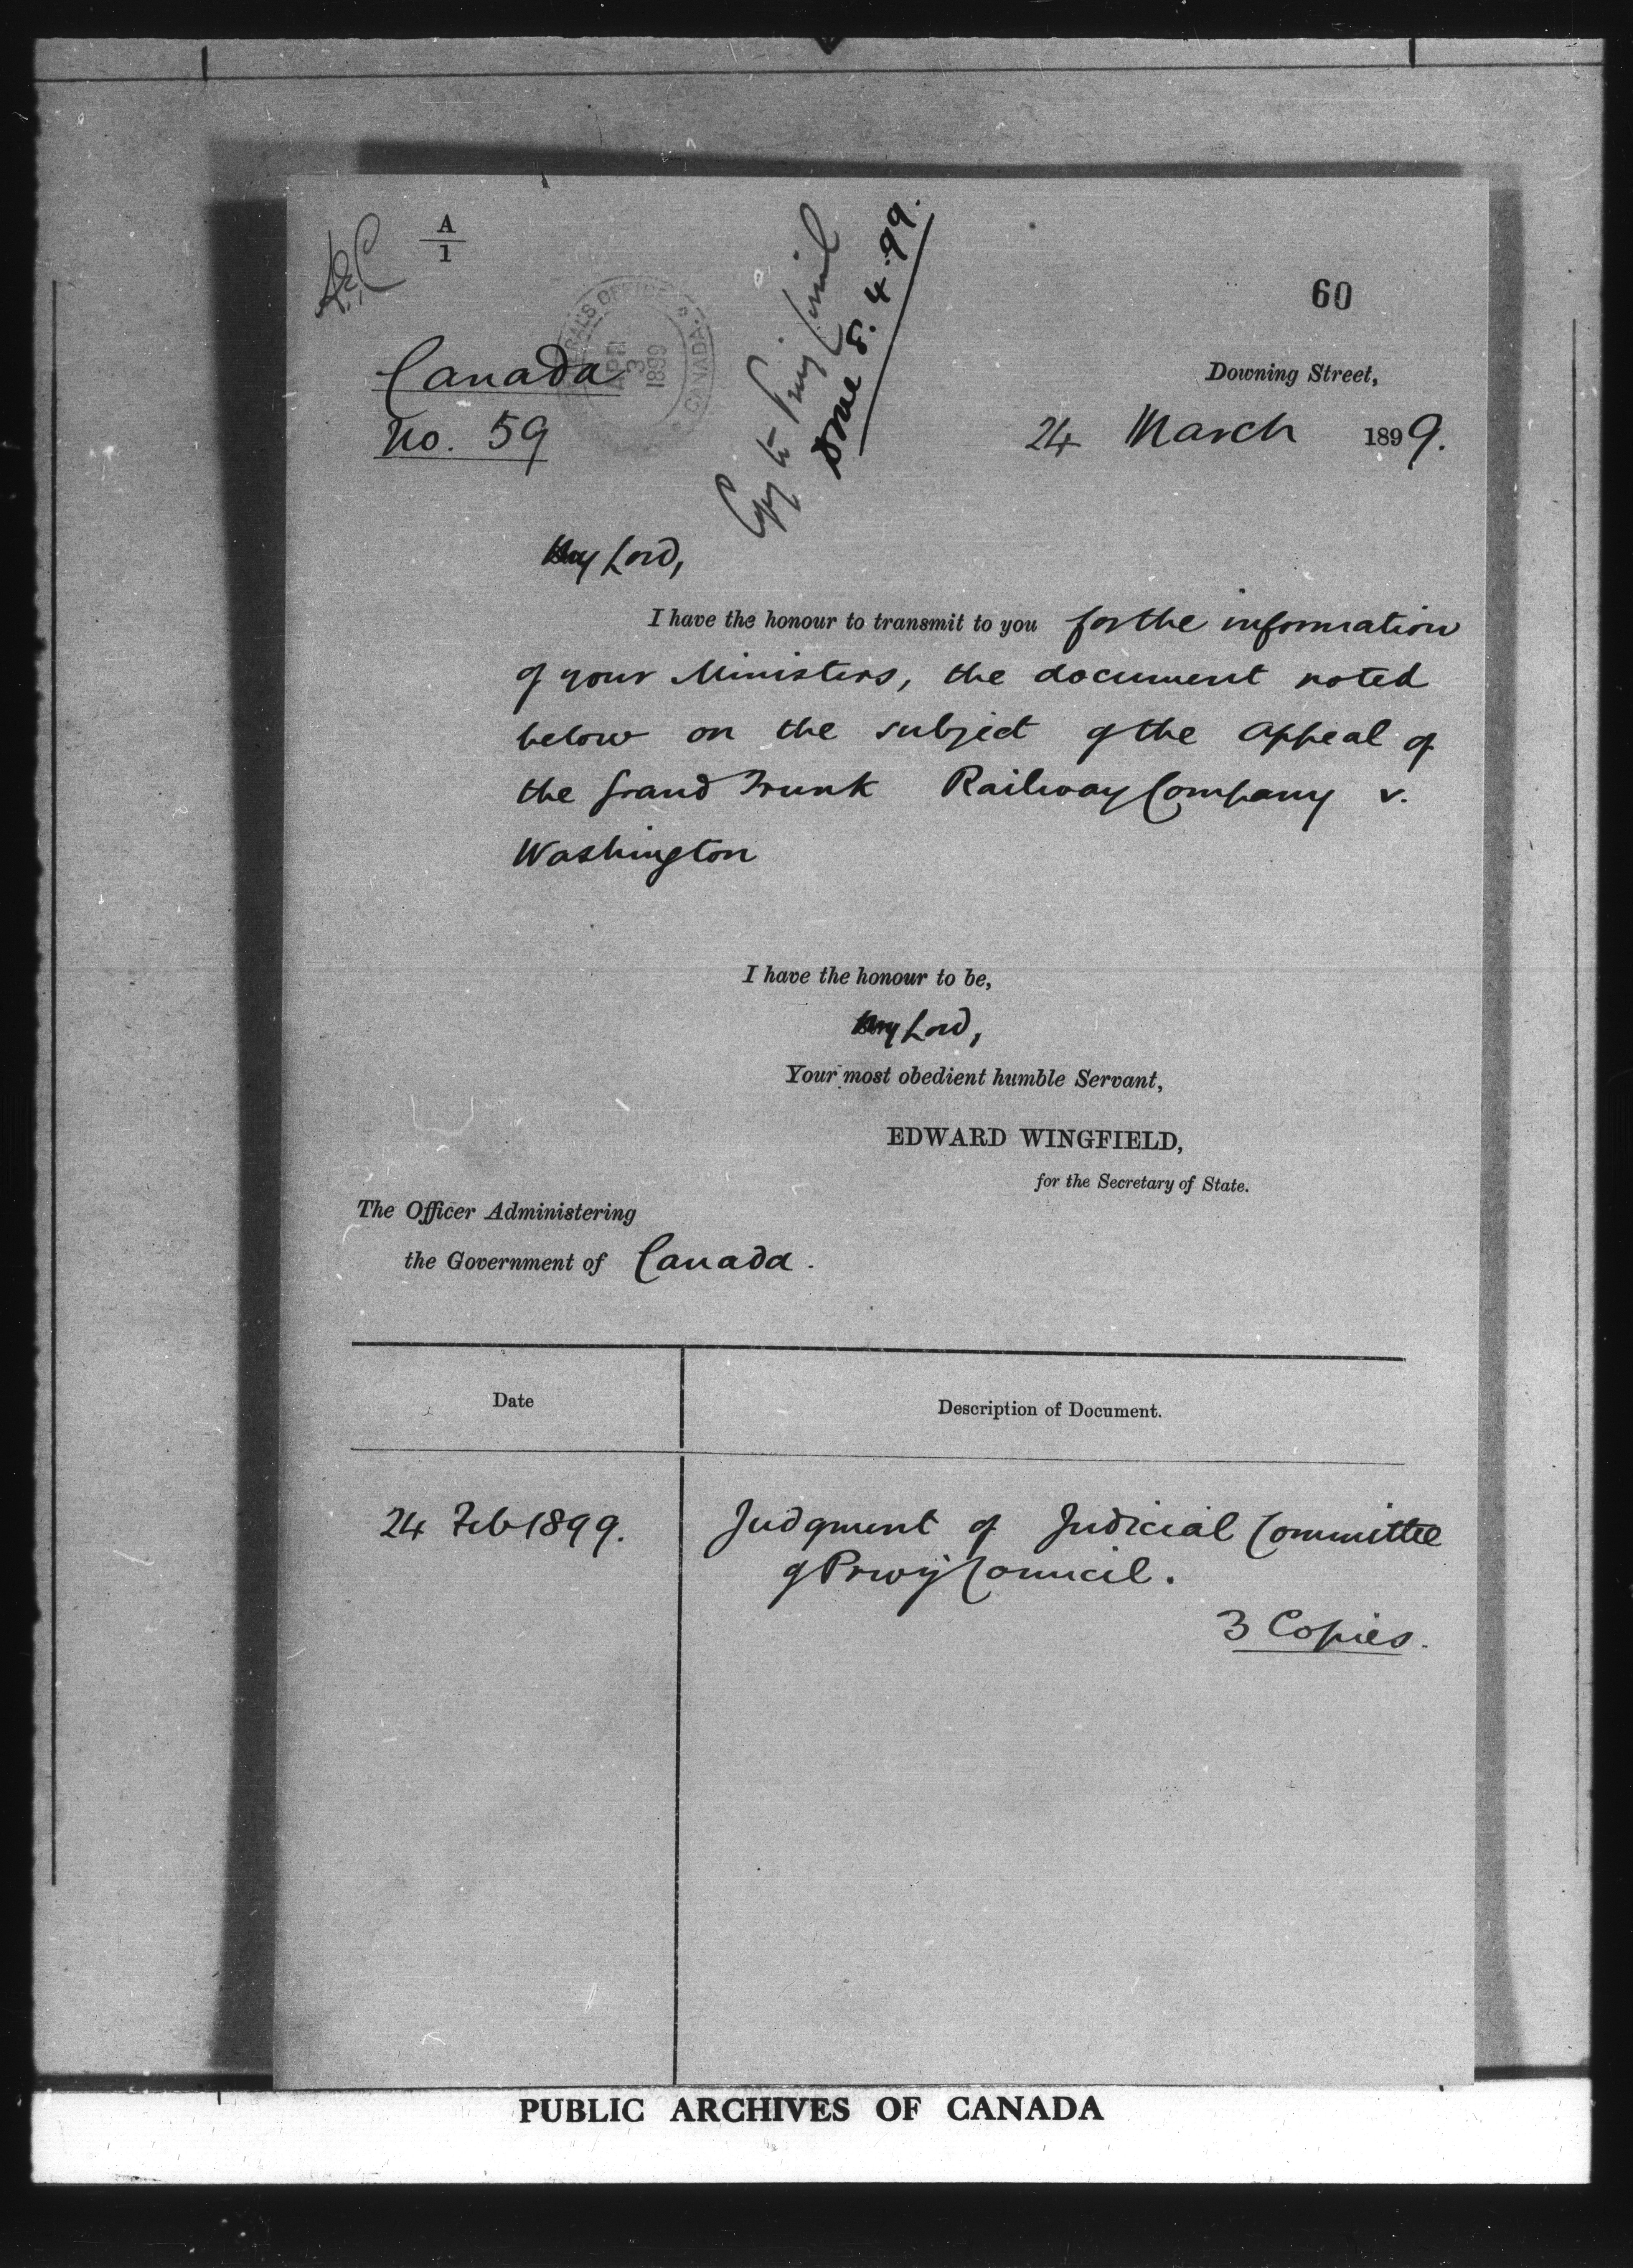 A
1
60
Canada
No. 59
CANADA
APR
3
1899
Copy to Privy Council
Done 8.4.99.
Downing Street,
24 March 1899.
My Lord,
I have the honour to transmit to you for the information
of your Ministers, the document noted
below on the subject of the Appeal of
the Grand Trunk Railway Company v.
Washington
I have the honour to be,
My Lord,
Your most obedient humble Servant,
EDWARD WINGFIELD,
for the Secretary of State.
The Officer Administering
the Government of Canada.
Date
Description of Document.
24 Feb 1899.
Judgment of Judicial Committee
of Privy Council.
3 Copies.
PUBLIC ARCHIVES OF CANADA